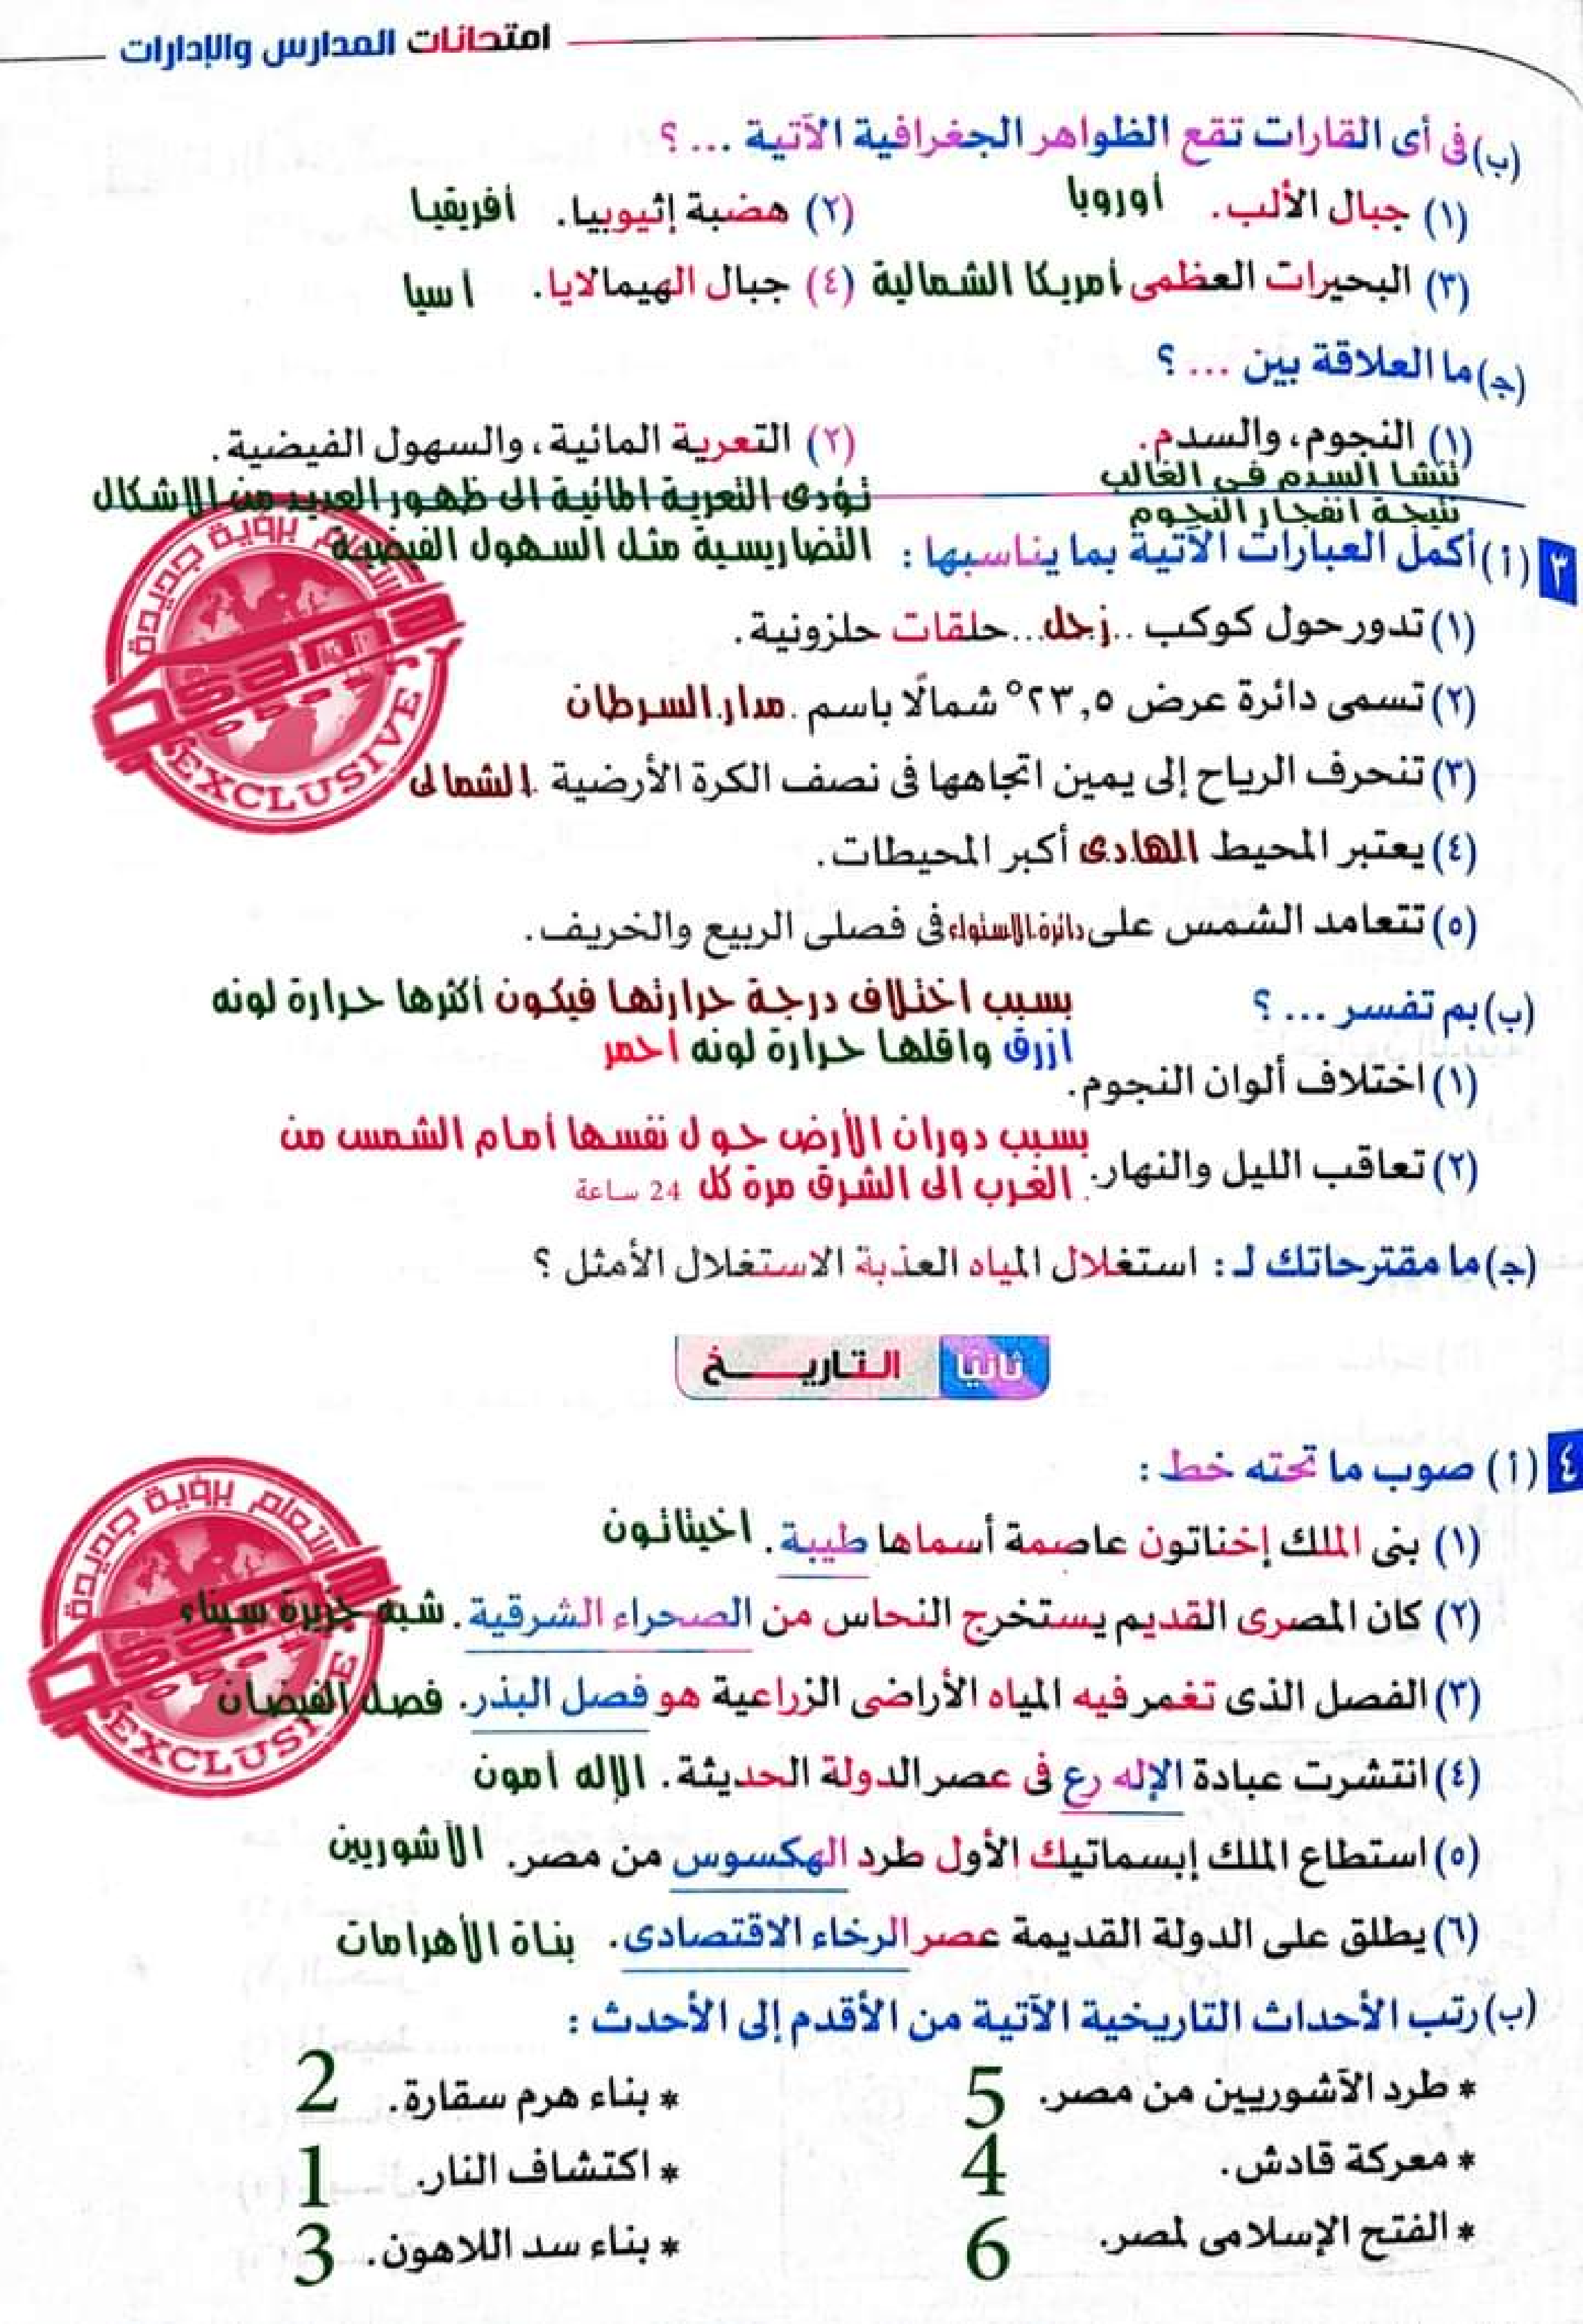 امتحانات المدارس والإدارات
(ب) فى أى القارات تقع الظواهر الجغرافية الآتية ... ؟
(١) جبال الألب. أوروبا (٢) هضبة إثيوبيا. أفريقيا
(٣) البحيرات العظمى أمريكا الشمالية (٤) جبال الهيمالايا. أسيا
(جـ) ما العلاقة بين ... ؟
(١) النجوم، والسدم. (٢) التعرية المائية، والسهول الفيضية.
تنشا السدم فى الغالب
نتيجة انفجار النجوم
تؤدى التعرية المائية الى ظهور العديد من الاشكال
التضاريسية مثل السهول الفيضية
٣ (أ) أكمل العبارات الآتية بما يناسبها :
(١) تدور حول كوكب ..زحل... حلقات حلزونية.
(٢) تسمى دائرة عرض ٢٣,٥° شمالًا باسم .مدار السرطان
(٣) تنحرف الرياح إلى يمين اتجاهها فى نصف الكرة الأرضية .الشمالى
(٤) يعتبر المحيط الهادى أكبر المحيطات.
(٥) تتعامد الشمس على دائرة الاستواء فى فصلى الربيع والخريف.
(ب) بم تفسر ... ؟
بسبب اختلاف درجة حرارتها فيكون أكثرها حرارة لونه
ازرق واقلها حرارة لونه احمر
(١) اختلاف ألوان النجوم.
بسبب دوران الأرض حول نفسها أمام الشمس من
(٢) تعاقب الليل والنهار. الغرب الى الشرق مرة كل 24 ساعة
(جـ) ما مقترحاتك لـ : استغلال المياه العذبة الاستغلال الأمثل ؟
ثانيًا التاريـــــخ
٤ (أ) صوب ما تحته خط :
(١) بنى الملك إخناتون عاصمة أسماها طيبة. اخيتاتون
(٢) كان المصرى القديم يستخرج النحاس من الصحراء الشرقية. شبه جزيرة سيناء
(٣) الفصل الذى تغمر فيه المياه الأراضى الزراعية هو فصل البذر. فصل الفيضان
(٤) انتشرت عبادة الإله رع فى عصر الدولة الحديثة. الإله آمون
(٥) استطاع الملك إبسماتيك الأول طرد الهكسوس من مصر. الأشوريين
(٦) يطلق على الدولة القديمة عصر الرخاء الاقتصادى. بناة الأهرامات
(ب) رتب الأحداث التاريخية الآتية من الأقدم إلى الأحدث :
* طرد الآشوريين من مصر. 5 * بناء هرم سقارة. 2
* معركة قادش. 4 * اكتشاف النار. 1
* الفتح الإسلامى لمصر. 6 * بناء سد اللاهون. 3